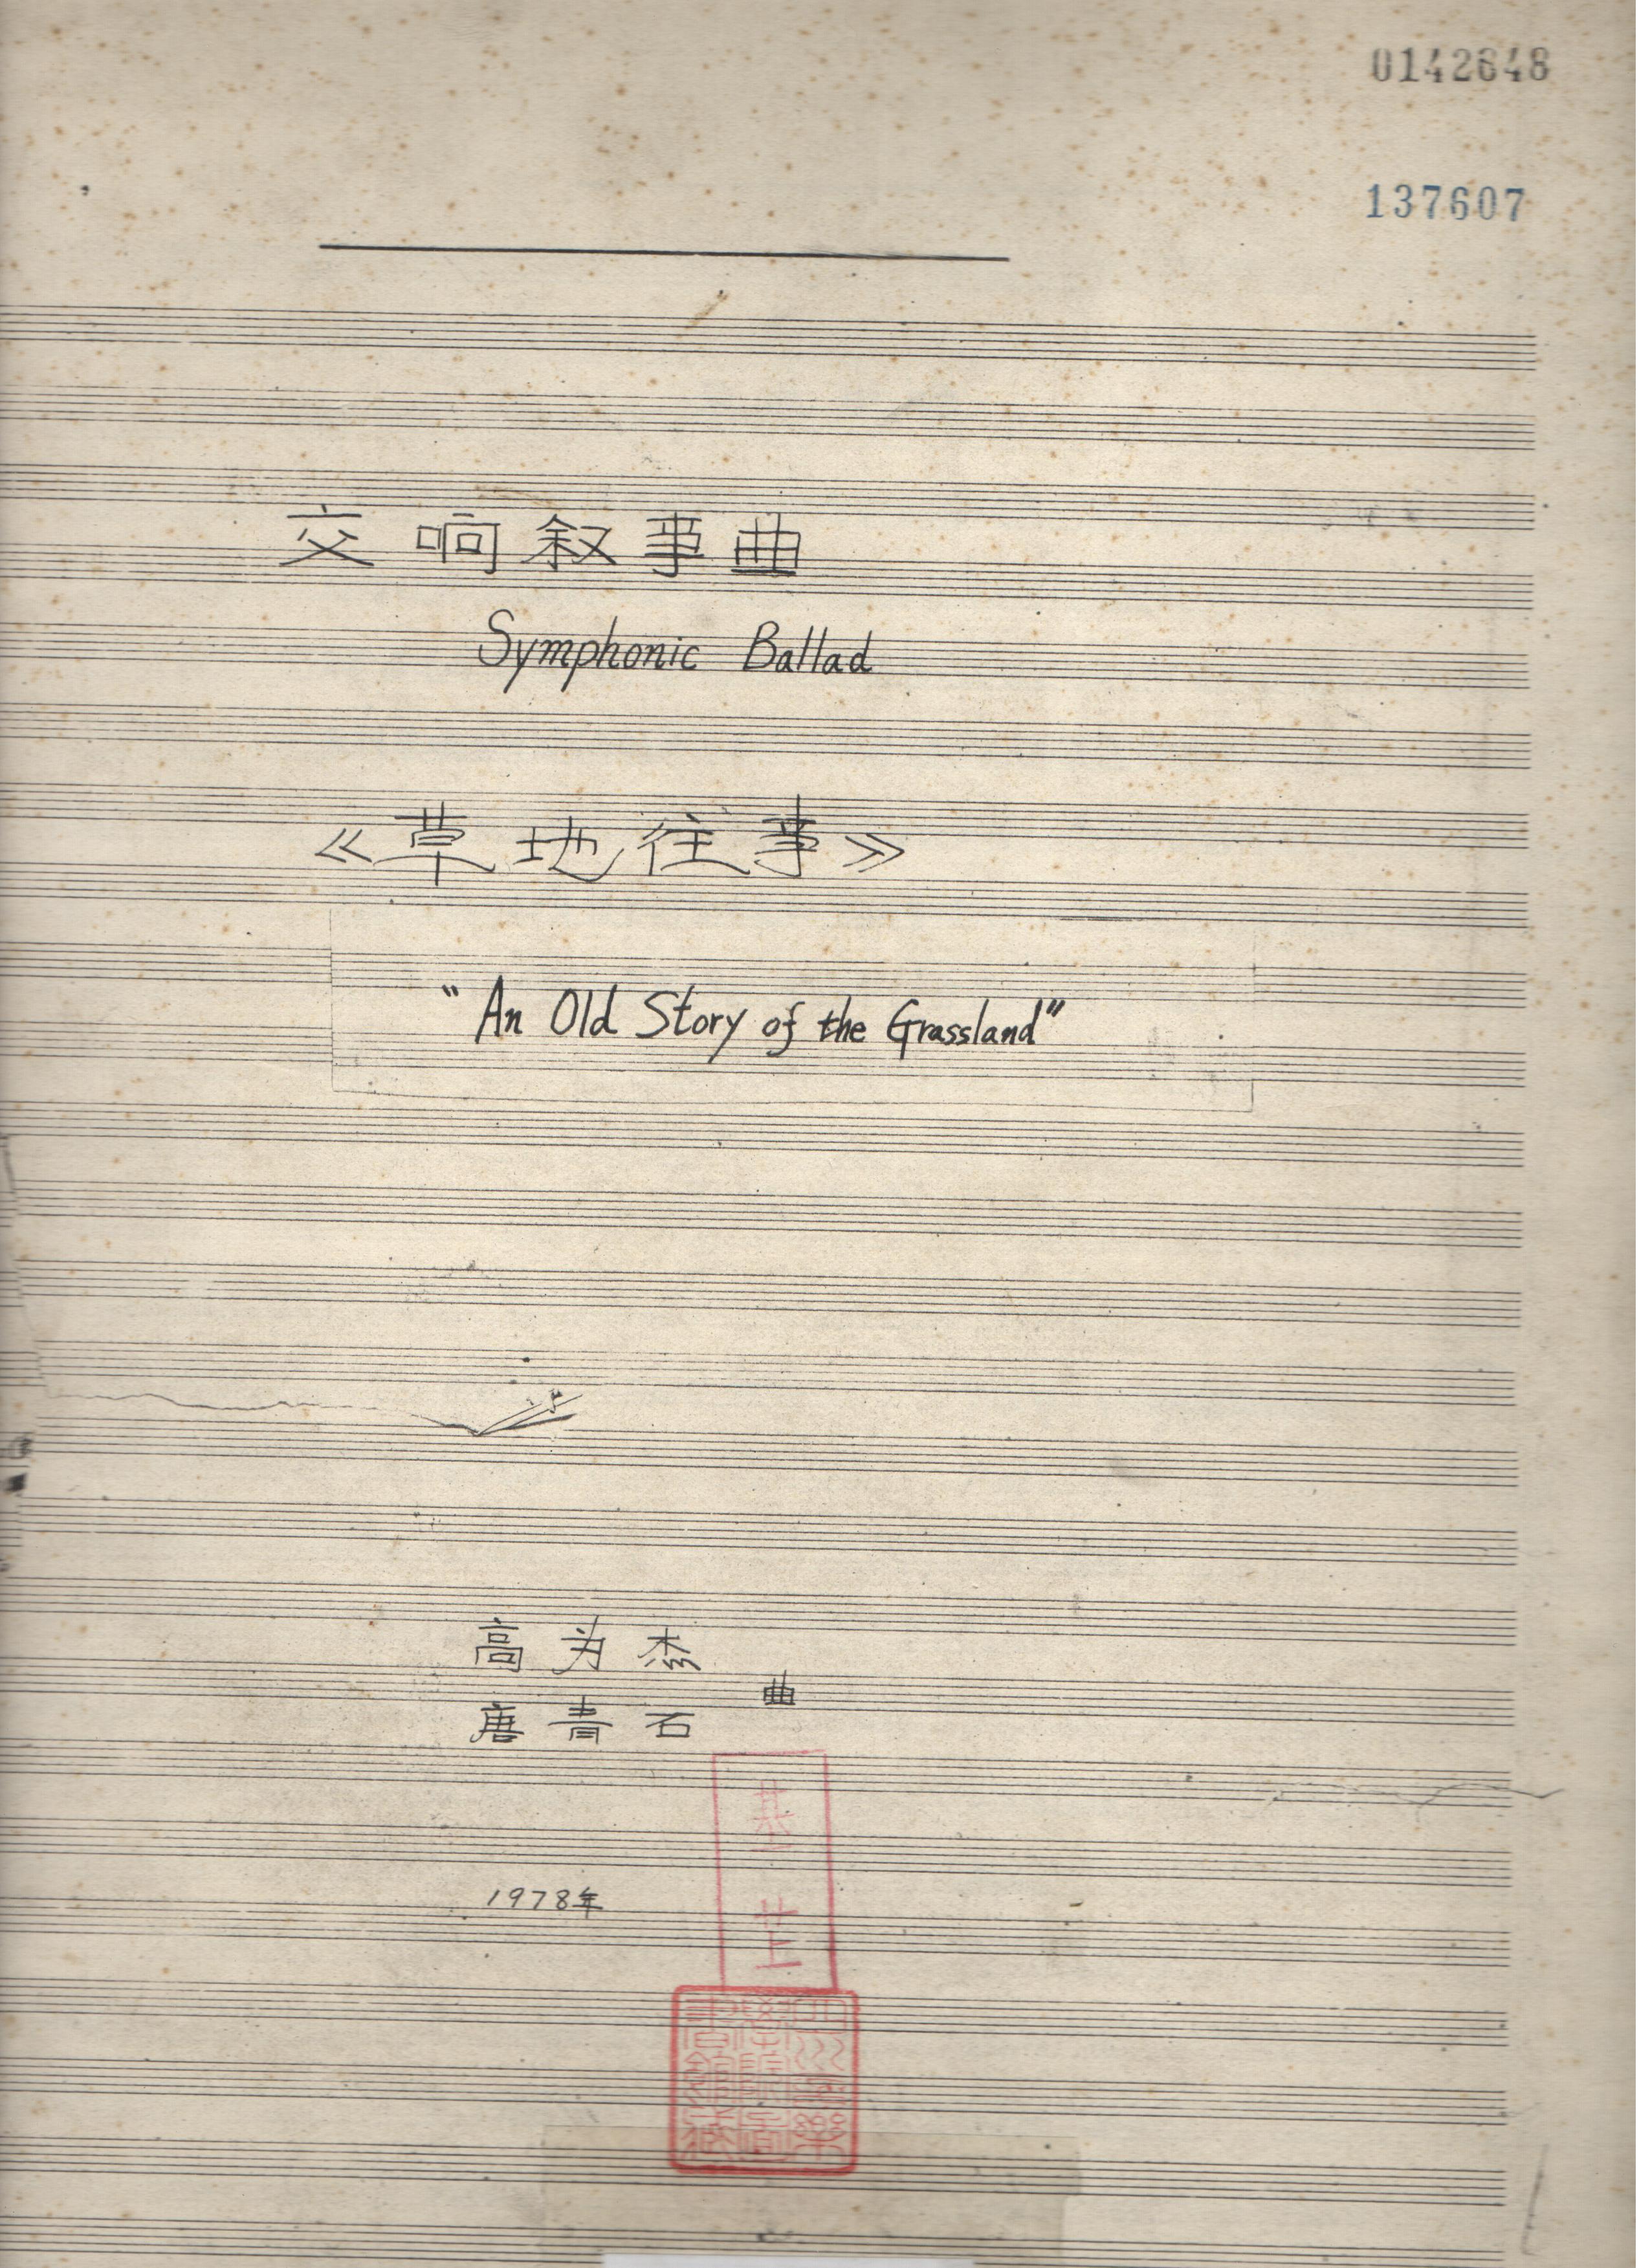 0142648
137607
交响叙事曲
Symphonic Ballad
《草地往事》
"An Old Story of the Grassland"
高为杰
唐青石
曲
1978年
四川音樂
學院圖
書館藏